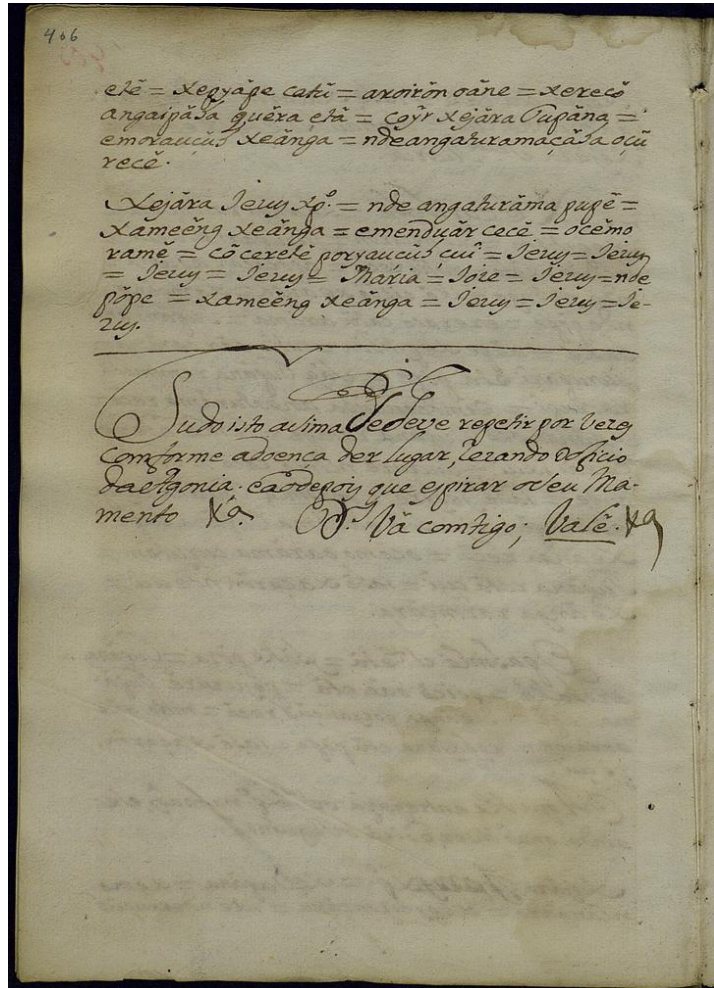 406
etê = xepyâpe catû = aroirõn oâne = xerecô
angaipâba quêra etâ = coŷr xejâra Tupâna =
emoraucûb xeânga = ndêangâturamaçâba oçû
recê.
Xejâra Jesus Xpo. = nde angaturâma pupê =
xâmeêng xeânga = emenduâr cecê = ocêmo
ramê = cô ceretê poryaucûb çuî = Jesus = Jesus
= Jesus = Jesus = Mâria = Joze = Jesus = nde
pôpe = xâmeêng xeânga = Jesus = Jesus = Je-
zus.
Tudo isto asima se deve repetir por vezes
comforme a doença der lugar, rezando o oficio
da Agonia. e aodepois que espirar o seu Ma-
mento Vâ comtigo; Valê.